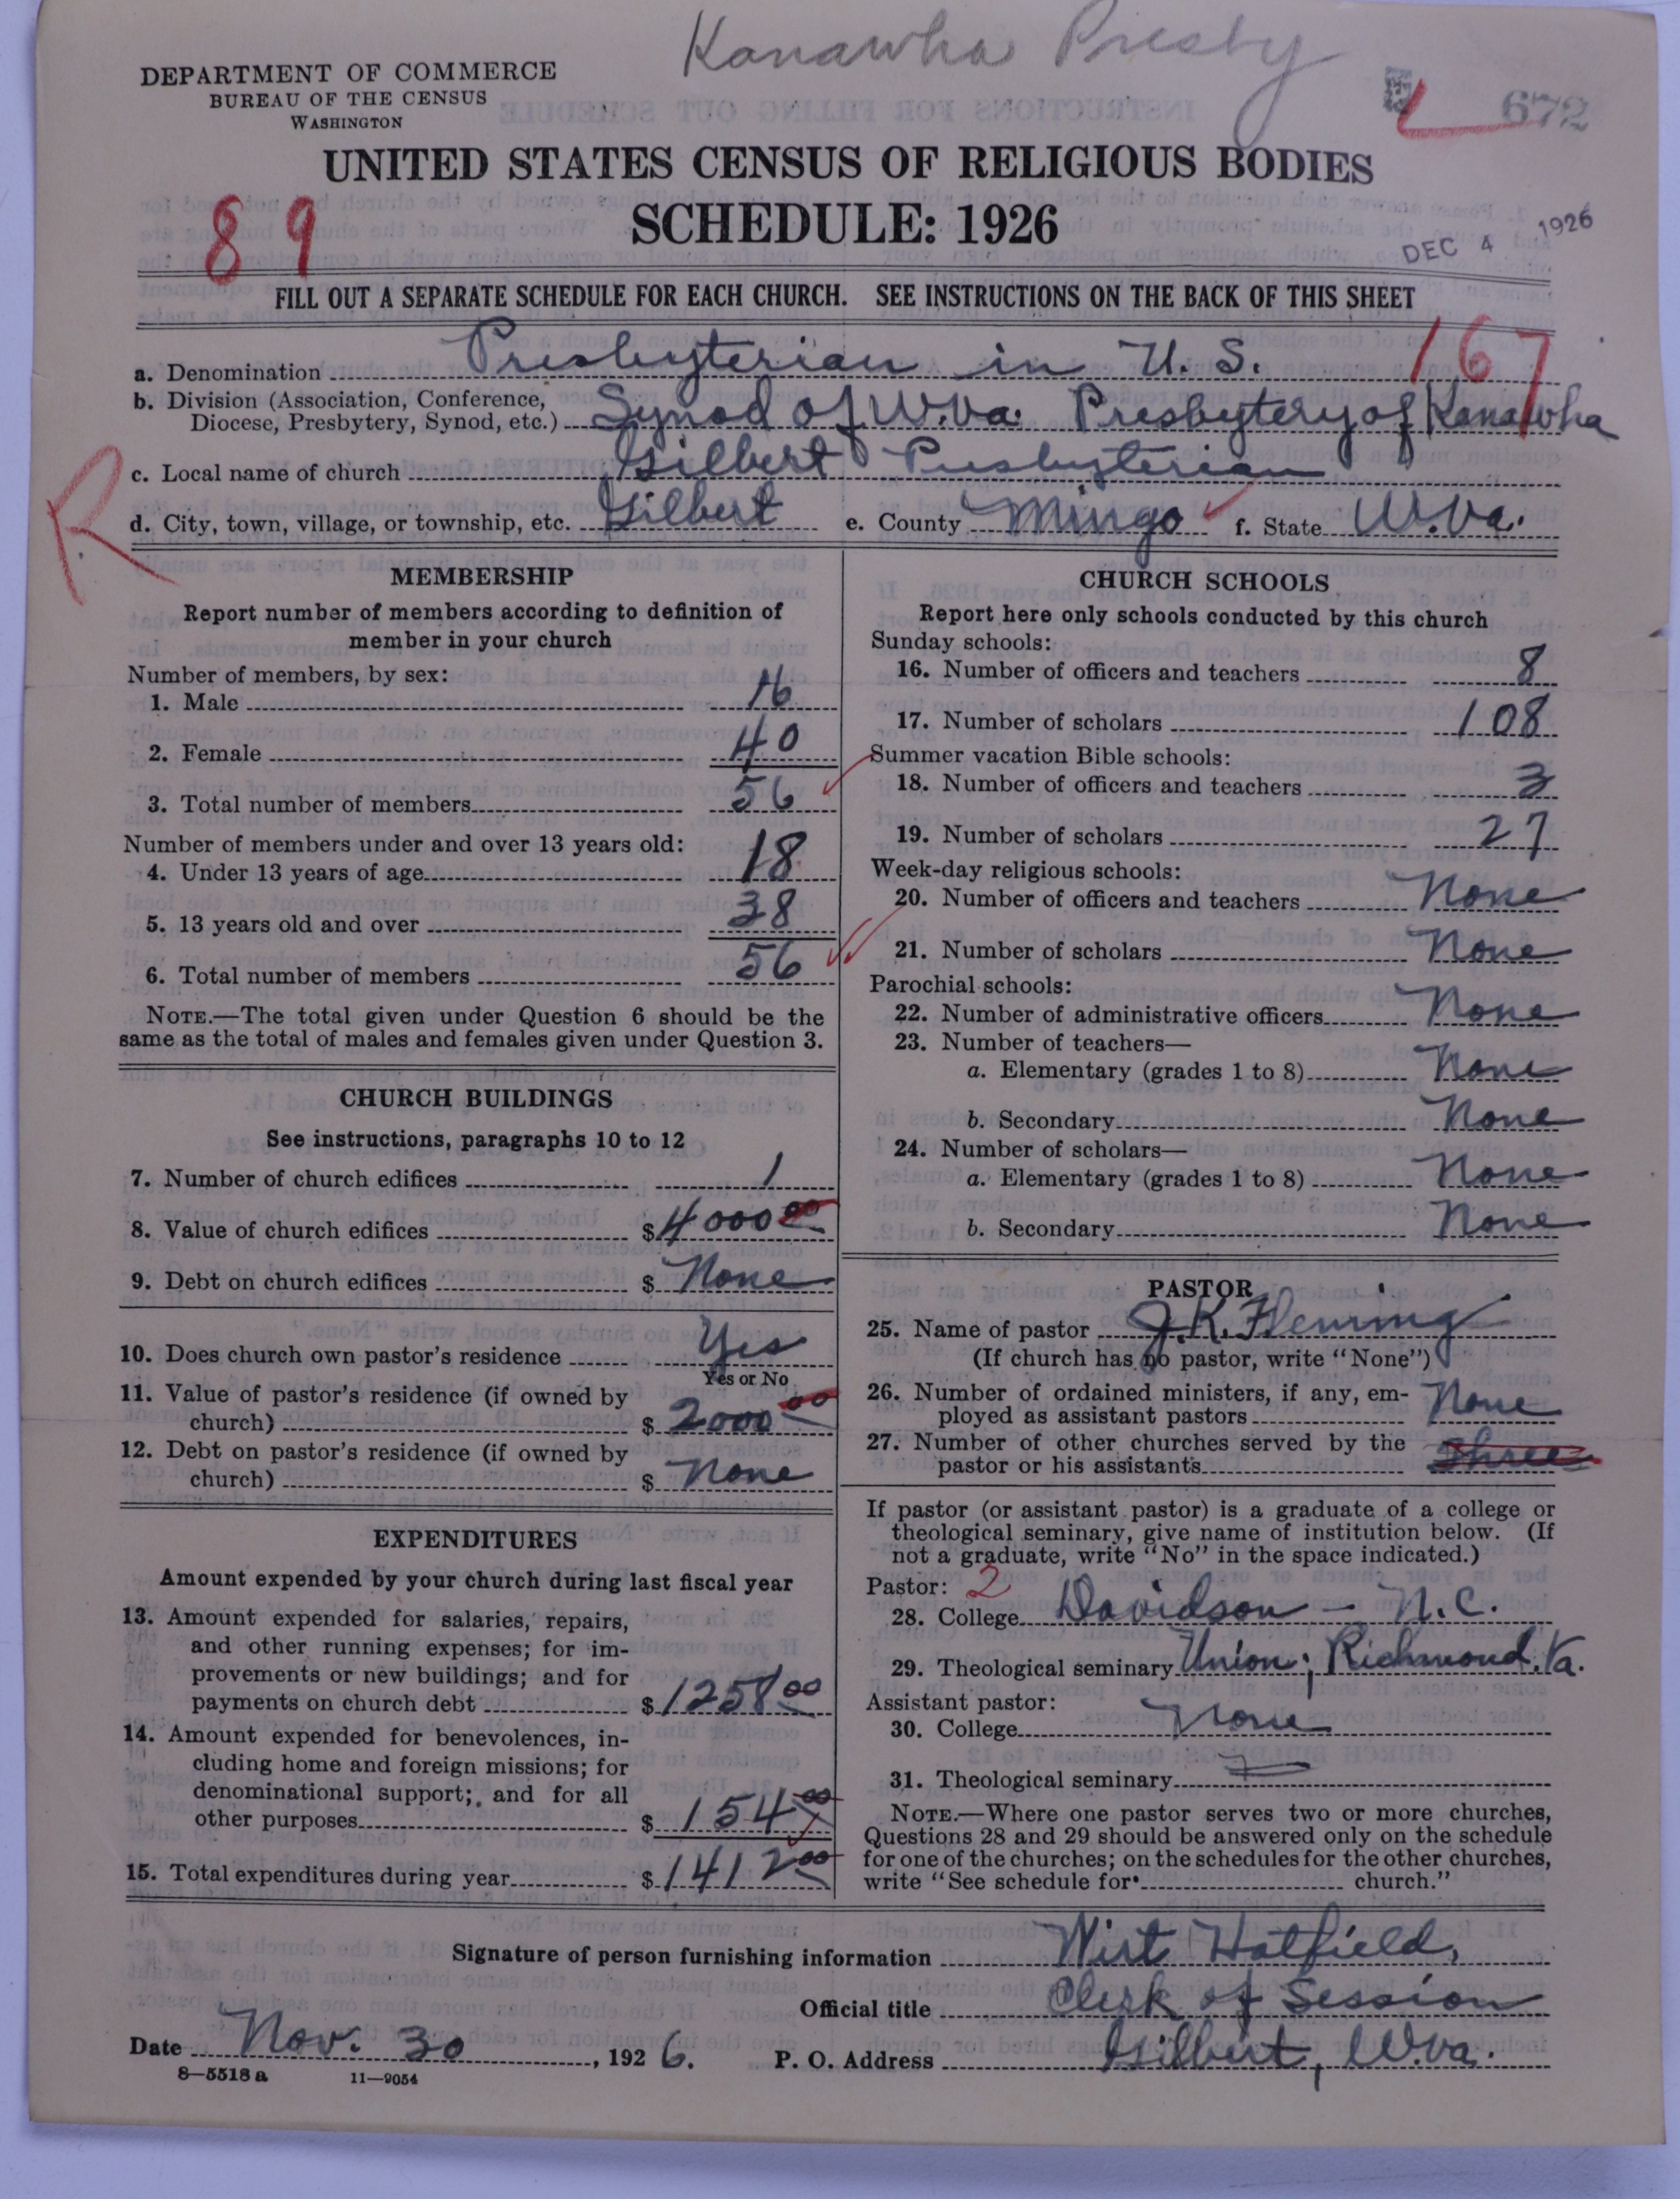 Kanawha Presby
DEPARTMENT OF COMMERCE
BUREAU OF THE CENSUS
WASHINGTON
672
UNITED STATES CENSUS OF RELIGIOUS BODIES
89
SCHEDULE: 1926
DEC 4 1926
FILL OUT A SEPARATE SCHEDULE FOR EACH CHURCH. SEE INSTRUCTIONS ON THE BACK OF THIS SHEET
167
a. Denomination Presbyterian in U. S.
b. Division (Association, Conference,
Diocese, Presbytery, Synod, etc.) Synod of W.Va. Presbytery of Kanawha
R
c. Local name of church Gilbert Presbyterian
d. City, town, village, or township, etc. Gilbert e. County Mingo f. State W.Va.
MEMBERSHIP
Report number of members according to definition of
member in your church
Number of members, by sex:
1. Male 16
2. Female 40
3. Total number of members 56
Number of members under and over 13 years old:
4. Under 13 years of age 18
5. 13 years old and over 38
6. Total number of members 56
NOTE.—The total given under Question 6 should be the
same as the total of males and females given under Question 3.
CHURCH BUILDINGS
See instructions, paragraphs 10 to 12
7. Number of church edifices 1
8. Value of church edifices $4000 00
9. Debt on church edifices $ None
10. Does church own pastor's residence Yes
Yes or No
11. Value of pastor's residence (if owned by
church) $ 2000 00
12. Debt on pastor's residence (if owned by
church) $ None
EXPENDITURES
Amount expended by your church during last fiscal year
13. Amount expended for salaries, repairs,
and other running expenses; for im-
provements or new buildings; and for
payments on church debt $ 1258 00
14. Amount expended for benevolences, in-
cluding home and foreign missions; for
denominational support; and for all
other purposes $ 154 00
15. Total expenditures during year $ 1412 00
CHURCH SCHOOLS
Report here only schools conducted by this church
Sunday schools:
16. Number of officers and teachers 8
17. Number of scholars 108
Summer vacation Bible schools:
18. Number of officers and teachers 3
19. Number of scholars 27
Week-day religious schools:
20. Number of officers and teachers None
21. Number of scholars None
Parochial schools:
22. Number of administrative officers None
23. Number of teachers—
a. Elementary (grades 1 to 8) None
b. Secondary None
24. Number of scholars—
a. Elementary (grades 1 to 8) None
b. Secondary None
PASTOR
25. Name of pastor J. K. Fleming
(If church has no pastor, write "None")
26. Number of ordained ministers, if any, em-
ployed as assistant pastors None
27. Number of other churches served by the
pastor or his assistants Three
If pastor (or assistant pastor) is a graduate of a college or
theological seminary, give name of institution below. (If
not a graduate, write "No" in the space indicated.)
Pastor: 2
28. College Davidson - N.C.
29. Theological seminary Union; Richmond, Va.
Assistant pastor:
30. College None
31. Theological seminary
NOTE.—Where one pastor serves two or more churches,
Questions 28 and 29 should be answered only on the schedule
for one of the churches; on the schedules for the other churches,
write "See schedule for church."
Signature of person furnishing information Wirt Hatfield,
Official title Clerk of Session
Date Nov. 30, 1926. P. O. Address Gilbert, W.Va.
8—5518 a 11—9054